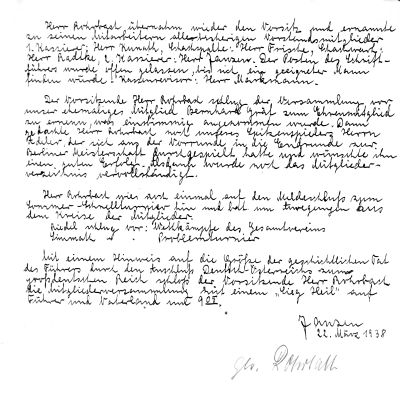 Herr Rohrbach übernahm wieder den Vorsitz und ernannte
zu seinen Mitarbeitern alle bisherigen Vorstandsmitglieder
1. Kassierer: Herr Kunath, Schachwarte: Herr Fritsche, Schachwart:
Herr Radtke, 2. Kassierer: Herr Janzen. Der Posten des Schrift-
führers wurde offen gelassen, bis sich ein geeigneter Mann
finden würde! Kassenrevisor: Herr Marksmann.
Der Vorsitzende Herr Rohrbach schlug der Versammlung vor
unser ehemaliges Mitglied Bernhard Gräf zum Ehrenmitglied
zu ernennen, was einstimmig angenommen wurde. Dann
gedachte Herr Rohrbach noch unseres Spitzenspielers Herrn
Adler, der sich aus der Vorrunde in die Endrunde zur
Berliner Meisterschaft durchgespielt hatte und wünschte ihm
einen guten Erfolg. Alsdann wurde noch das Mitglieder-
verzeichnis vervollständigt.
Herr Rohrbach wies noch einmal auf den Meldeschluß zum
Sommer-Schnellturnier hin und bat um Anregungen aus
dem Kreise der Mitglieder.
Riedel schlug vor: Wettkämpfe des Gesamtvereins
" : Problemturnier
Mit einem Hinweis auf die Größe der geschichtlichen Tat
des Führers durch den Anschluß Deutsch-Österreichs zum
großdeutschen Reich schloß der Vorsitzende Herr Rohrbach
die Mitgliederversammlung mit einem "Sieg Heil" auf
Führer und Vaterland um
Janzen
22. März 1938
gez. Rohrbach